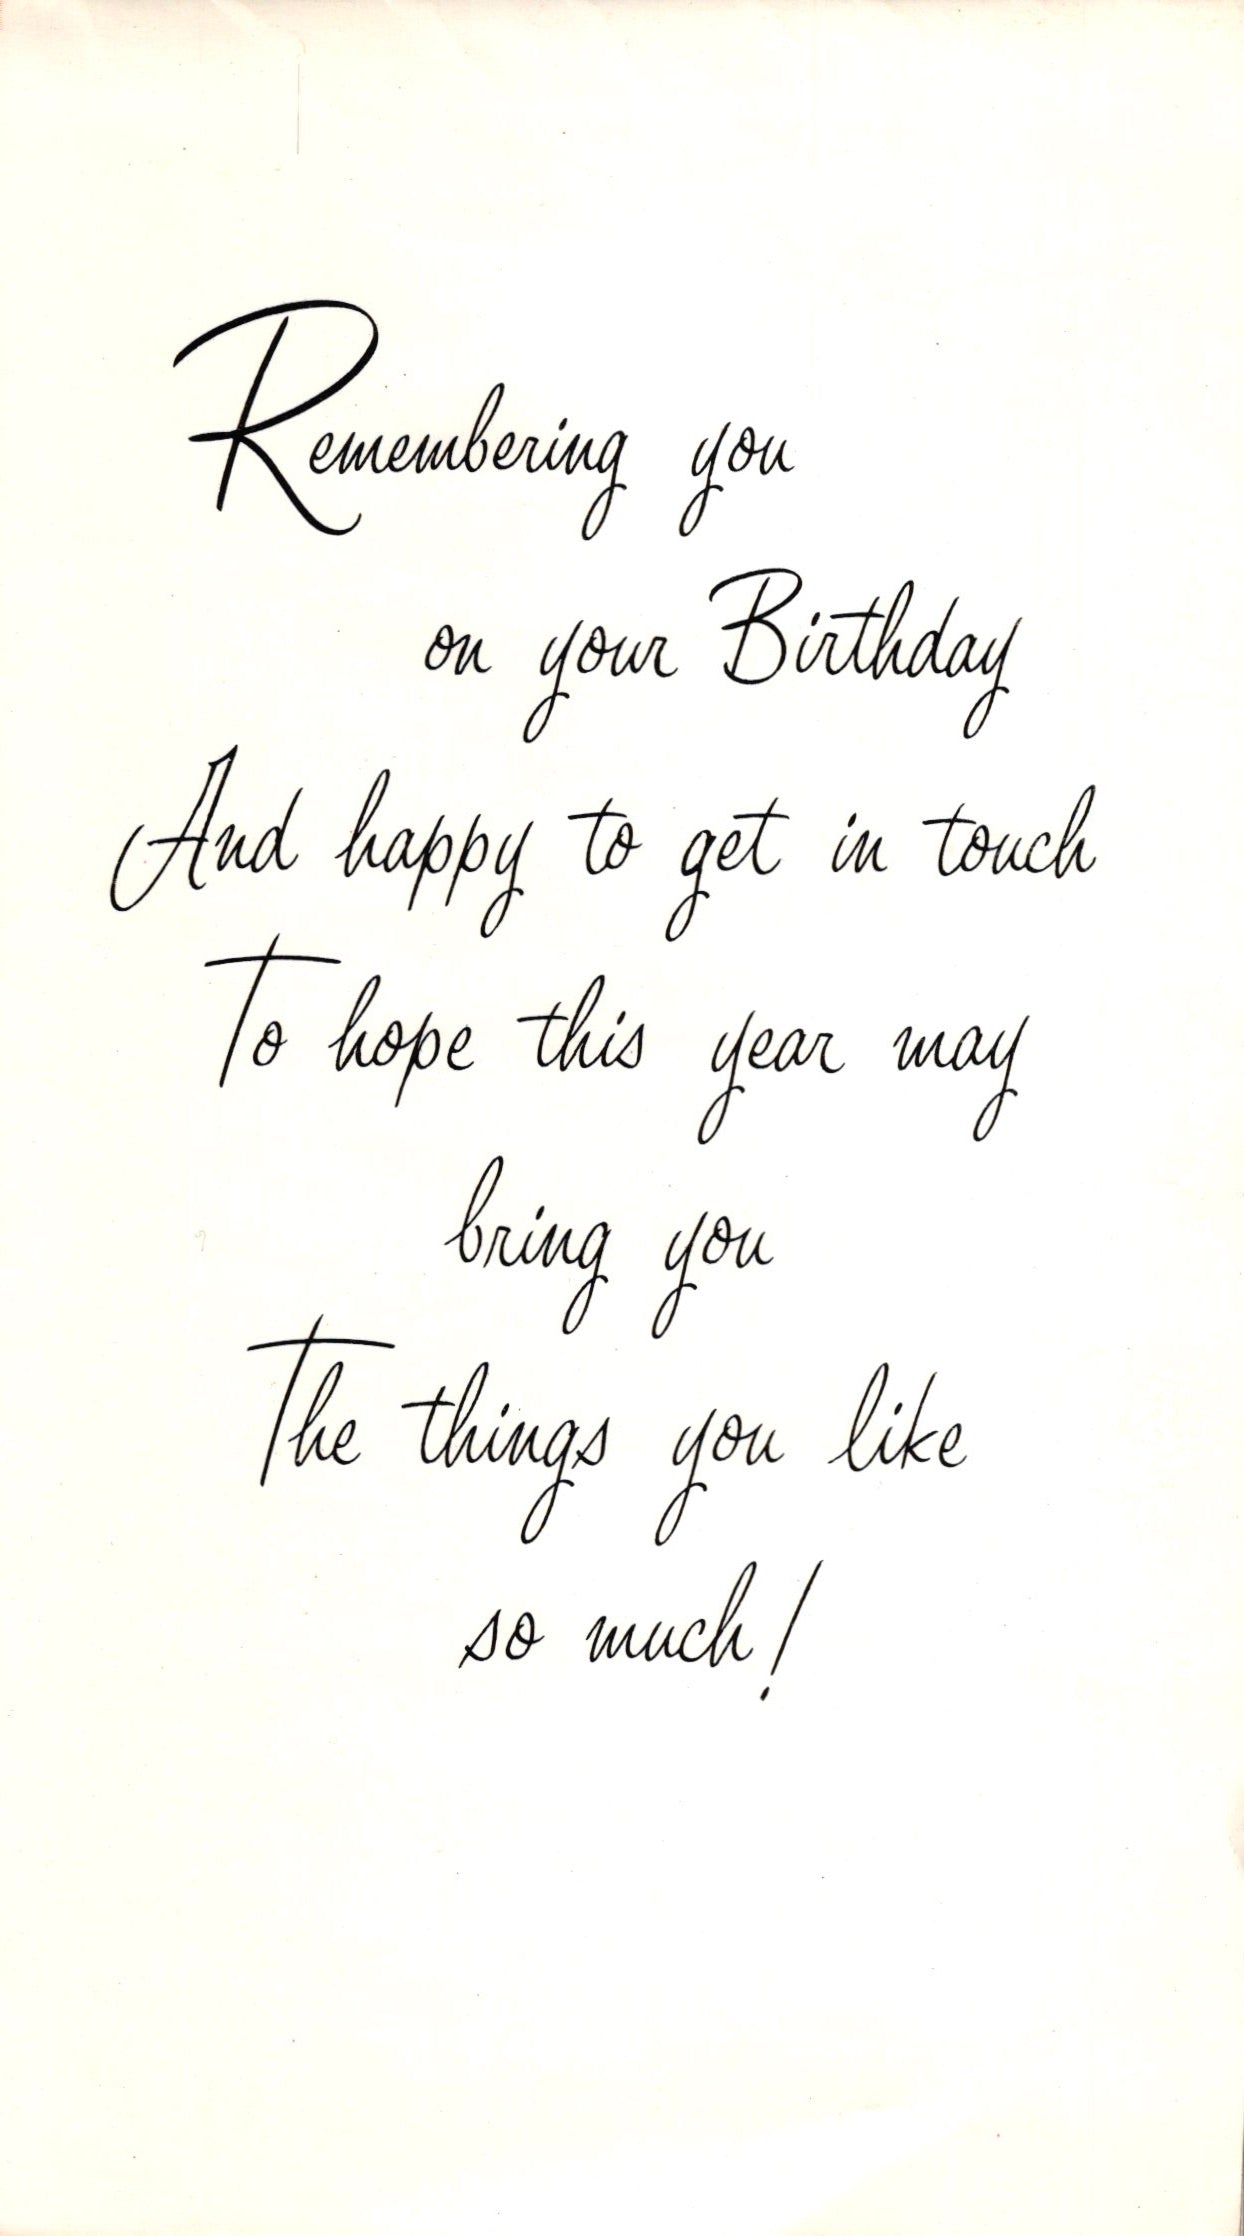 Remembering you
on your Birthday
And happy to get in touch
To hope this year may
bring you
The things you like
so much!